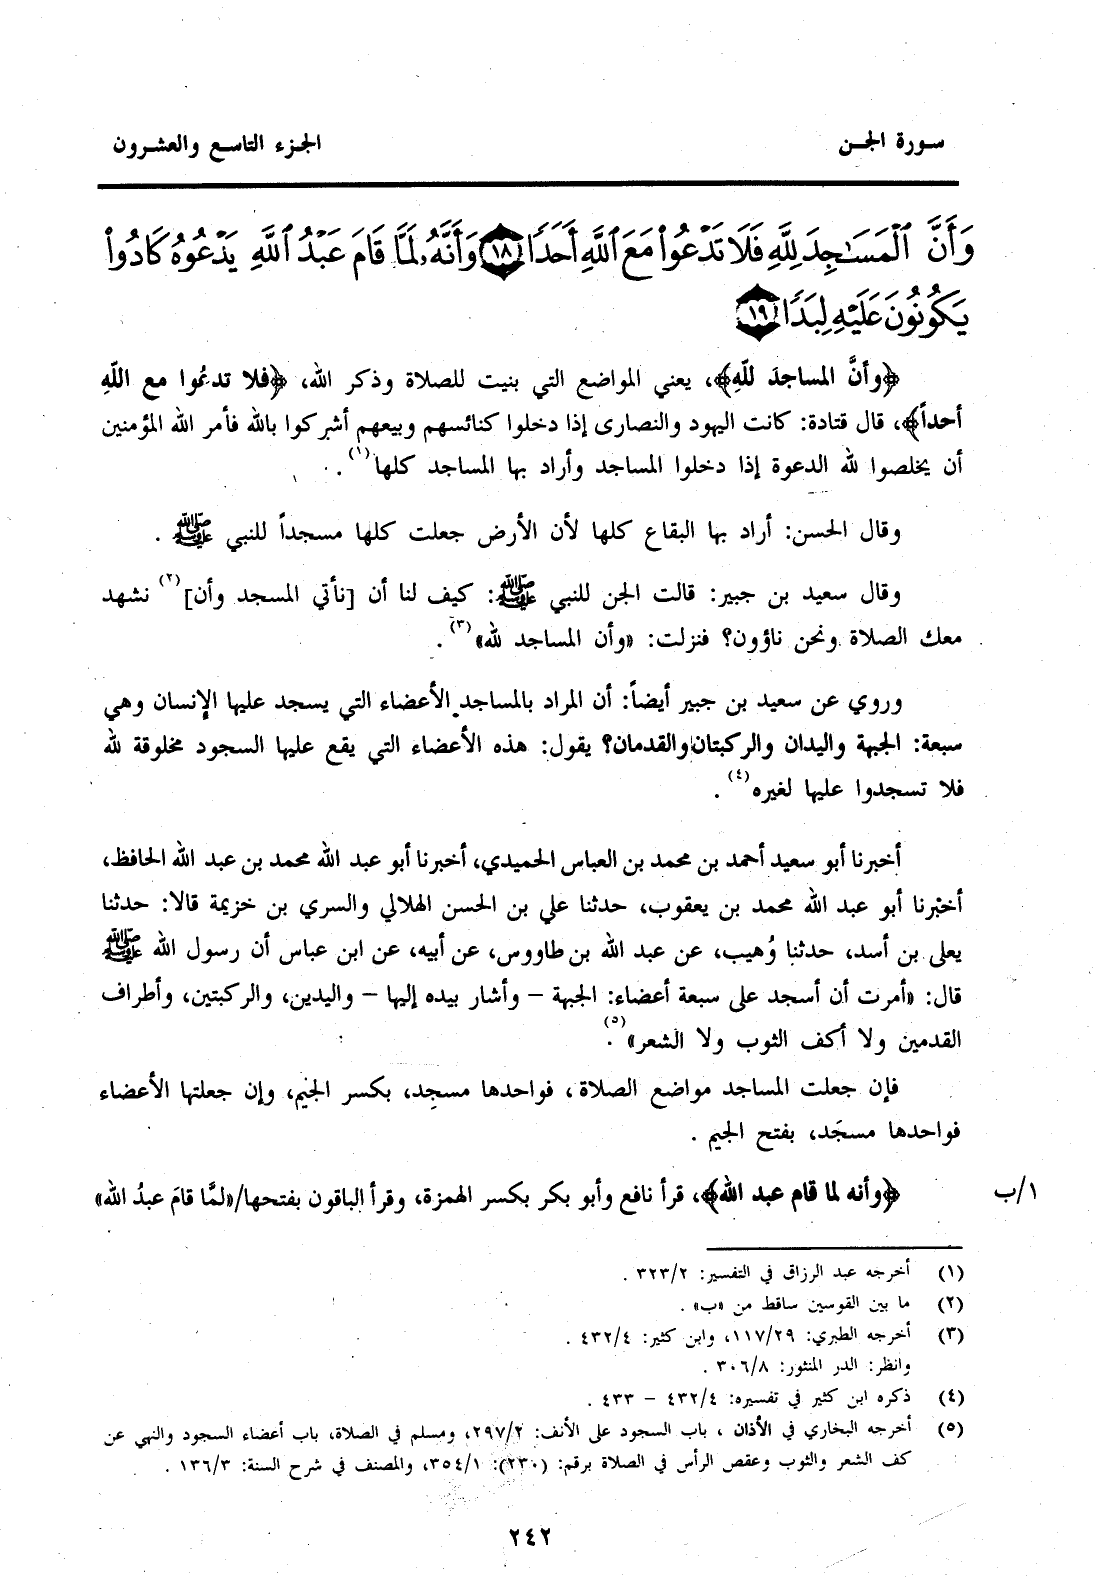 سورة الجن
الجزء التاسع والعشرون
وَأَنَّ ٱلْمَسَٰجِدَ لِلَّهِ فَلَا تَدْعُوا۟ مَعَ ٱللَّهِ أَحَدًا ١٨ وَأَنَّهُۥ لَمَّا قَامَ عَبْدُ ٱللَّهِ يَدْعُوهُ كَادُوا۟
يَكُونُونَ عَلَيْهِ لِبَدًا ١٩
﴿وأنَّ المساجدَ للّهِ﴾، يعني المواضع التي بنيت للصلاة وذكر الله، ﴿فلا تدعُوا مع اللّهِ
أحداً﴾، قال قتادة: كانت اليهود والنصارى إذا دخلوا كنائسهم وبيعهم أشركوا بالله فأمر الله المؤمنين
أن يخلصوا لله الدعوة إذا دخلوا المساجد وأراد بها المساجد كلها(١).
وقال الحسن: أراد بها البقاع كلها لأن الأرض جعلت كلها مسجداً للنبي ﷺ .
وقال سعيد بن جبير: قالت الجن للنبي ﷺ: كيف لنا أن [نأتي المسجد وأن](٢) نشهد
معك الصلاة ونحن ناؤون؟ فنزلت: «وأن المساجد لله»(٣).
وروي عن سعيد بن جبير أيضاً: أن المراد بالمساجد الأعضاء التي يسجد عليها الإنسان وهي
سبعة: الجبهة واليدان والركبتان والقدمان؟ يقول: هذه الأعضاء التي يقع عليها السجود مخلوقة لله
فلا تسجدوا عليها لغيره(٤).
أخبرنا أبو سعيد أحمد بن محمد بن العباس الحميدي، أخبرنا أبو عبد الله محمد بن عبد الله الحافظ،
أخبرنا أبو عبد الله محمد بن يعقوب، حدثنا علي بن الحسن الهلالي والسري بن خزيمة قالا: حدثنا
يعلى بن أسد، حدثنا وُهيب، عن عبد الله بن طاووس، عن أبيه، عن ابن عباس أن رسول الله ﷺ
قال: «أمرت أن أسجد على سبعة أعضاء: الجبهة – وأشار بيده إليها – واليدين، والركبتين، وأطراف
القدمين ولا أكف الثوب ولا الشعر»(٥).
فإن جعلت المساجد مواضع الصلاة، فواحدها مسجِد، بكسر الجيم، وإن جعلتها الأعضاء
فواحدها مسجَد، بفتح الجيم .
﴿وأنه لما قام عبد الله﴾، قرأ نافع وأبو بكر بكسر الهمزة، وقرأ الباقون بفتحها/«لمَّا قامَ عبدُ الله»
١/ب
(١) أخرجه عبد الرزاق في التفسير: ٣٢٣/٢ .
(٢) ما بين القوسين ساقط من «ب» .
(٣) أخرجه الطبري: ١١٧/٢٩، وابن كثير: ٤٣٢/٤ .
وانظر: الدر المنثور: ٣٠٦/٨ .
(٤) ذكره ابن كثير في تفسيره: ٤٣٢/٤ – ٤٣٣ .
(٥) أخرجه البخاري في الأذان ، باب السجود على الأنف: ٢٩٧/٢، ومسلم في الصلاة، باب أعضاء السجود والنهي عن
كف الشعر والثوب وعقص الرأس في الصلاة برقم: (٢٣٠): ٣٥٤/١، والمصنف في شرح السنة: ١٣٦/٣ .
٢٤٢